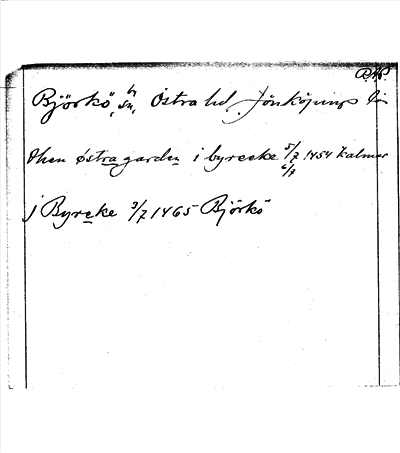 Björkö, sn, Östra hd, Jönköpings län
then østra garden i byrecke 5/7 1454 Kalmar
6/7
j Byrecke 3/7 1465 Björkö